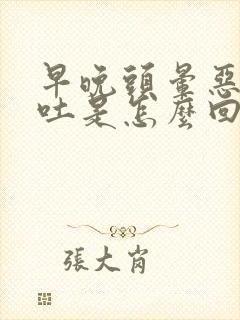 早晚頭暈惡
吐是怎麼回
張大肖